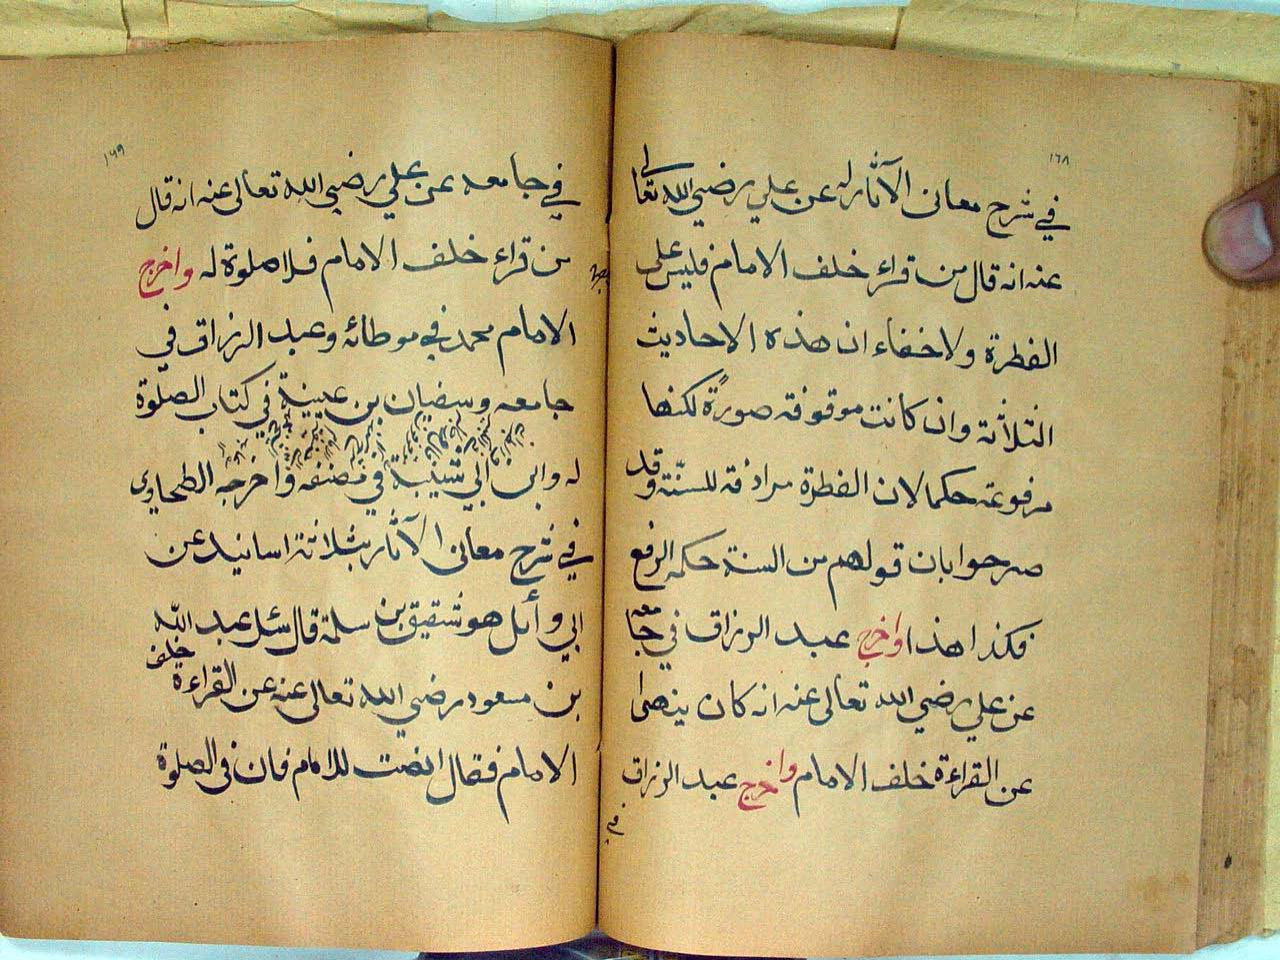 ١٦٨
في شرح معانى الآثار له عن علي رضي الله تعالى
عنه انه قال من قرء خلف الامام فليس على
الفطرة ولا خفاء ان هذه الاحاديث
الثلاثة وان كانت موقوفة صورةً لكنها
مرفوعة حكما لان الفطرة مرادفة للسنّة وقد
صرحوا بان قولهم من السنة حكمه الرفع
فكذا هذا واخرج عبد الرزاق في جامعه
عن علي رضي الله تعالى عنه انه كان ينهى
عن القراءة خلف الامام واخرج عبد الرزاق
١٦٩
في جامعه عن علي رضي الله تعالى عنه انه قال
من قراء خلف الامام فلا صلوة له واخرج
الامام محمد في موطائه وعبد الرزاق في
جامعه وسفيان بن عيينة في كتاب الصلوة
له وابن ابي شيبة في مصنفه واخرجه الطحاوى
في شرح معانى الآثار بثلاثة اسانيد عن
ابي وأئل هو شقيق بن سلمة قال سئل عبد الله
بن مسعود رضي الله تعالى عنه عن القراءة خلف
الامام فقال انصت للامام فان فى الصلوة